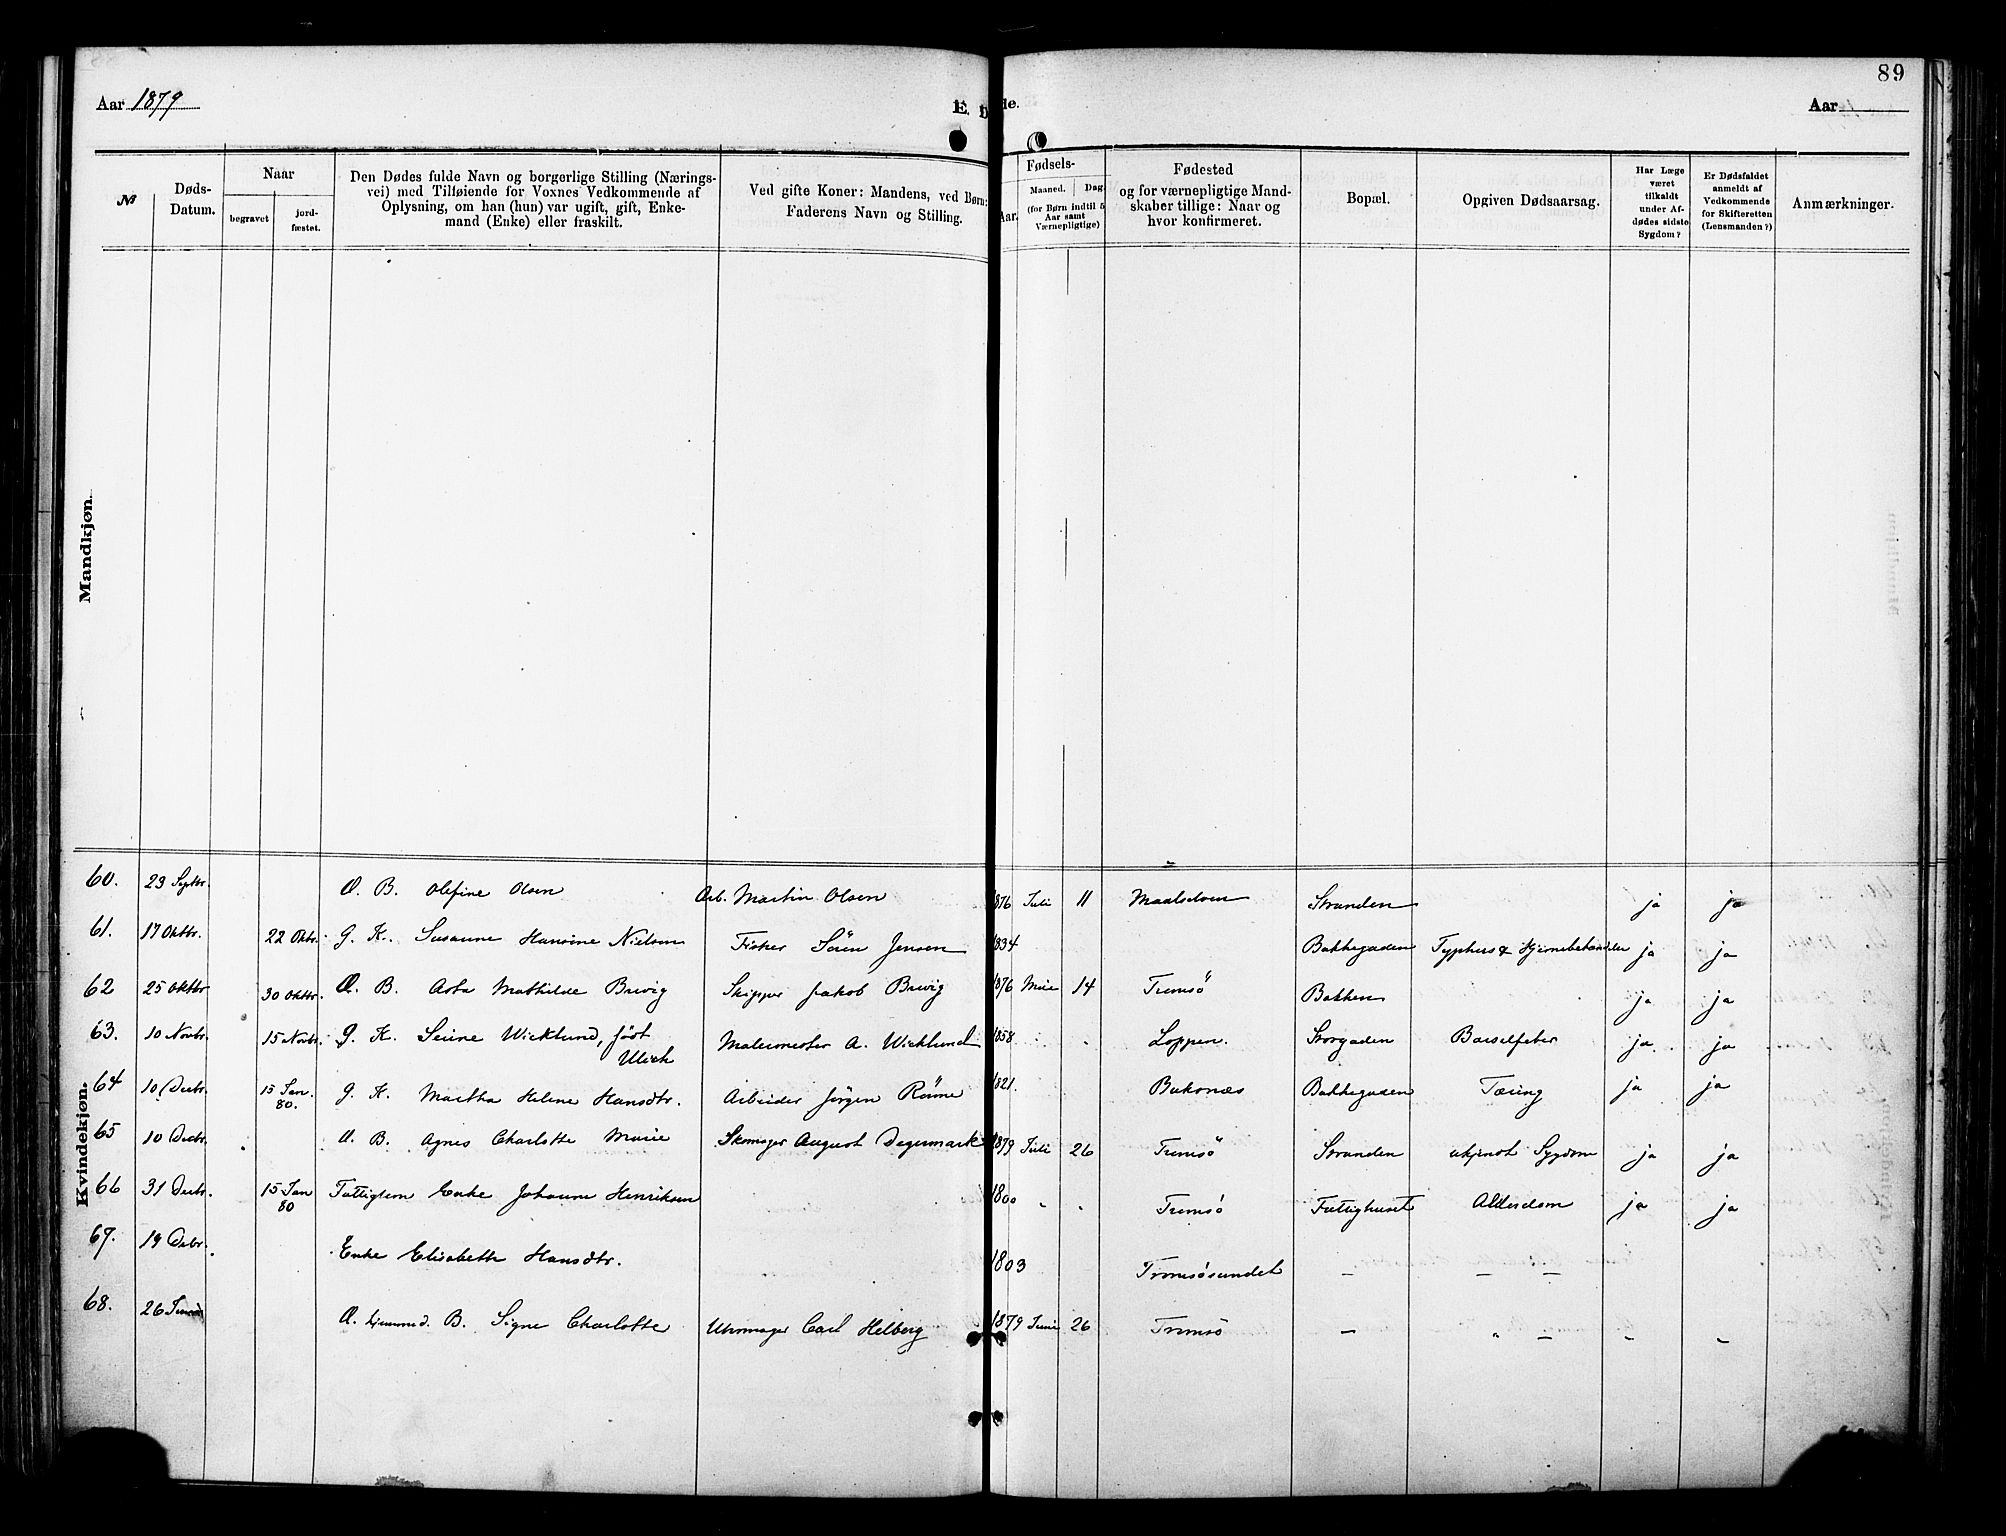 89
Aar 1879
E. b
de.
Aar
№
Døds-Datum.
Naar
begravet
jord-fæstet.
Den Dødes fulde Navn og borgerlige Stilling (Nærings-
vei) med Tilføiende for Voxnes Vedkommende af
Oplysning, om han (hun) var ugift, gift, Enke-
mand (Enke) eller fraskilt.
Ved gifte Koner: Mandens, ved Børn:
Faderens Navn og Stilling.
Fødsels-
Aar.
Maaned.
Dag.
(for Børn indtil 5
Aar samt
Værnepligtige)
Fødested
og for værnepligtige Mand-
skaber tillige: Naar og
hvor konfirmeret.
Bopæl.
Opgiven Dødsaarsag.
Har Læge
været
tilkaldt
under Af-
dødes sidste
Sygdom?
Er Dødsfaldet
anmeldt af
Vedkommende
for Skifteretten
(Lensmanden?)
Anmærkninger.
Mandkjøn.
Kvindekjøn.
60. 23 Septbr. Æ. B. Olefine Olsen Arb. Martin Olsen 1876 Juli 11 Maalselven Stranden ja ja
61. 17 Oktbr. 22 Oktbr. G. K. Susanne Hansine Nielsen Fisker Sören Jensen 1834 Bakkegaden Typhus & Hjernebetændelse ja ja
62 25 Oktbr 30 Oktbr. Æ. B. Asta Mathilde Brevig Skipper Jakob Brevig 1876 14 Tromsö Bakken ja ja
63. 10 Novbr. 15 Novbr. G. K. Seiine Wicklund, født
Ulich Malermester A. Wicklund 1858 Loppen. Storgaden Barselfeber ja ja
64 10 Decbr. 15 Jan. 80. G. K. Martha Helene Hansdtr. Arbeider Jörgen Rönne 1821. Bakkegaden Tæring ja ja
65 10 Decbr. Æ. B. Agnes Charlotte Marie Skomager August Degermark 1879 Juli 26 Tromsö Stranden ukjendt Sygdom ja ja
66 31 Decbr. 15 Jan 80 Fattiglem Enke Johanne Henriksen 1800 " " Tromsö Fattighuset Alderdom ja ja
67. 19 Decbr. Enke Elisabeth Hansdtr. 1803 Tromsösundet — — —
68. 26 Juni Æ. hjemmed. B. Signe Charlotte Uhrmager Carl Helberg 1879 Juni 26 Tromsö — " — " "